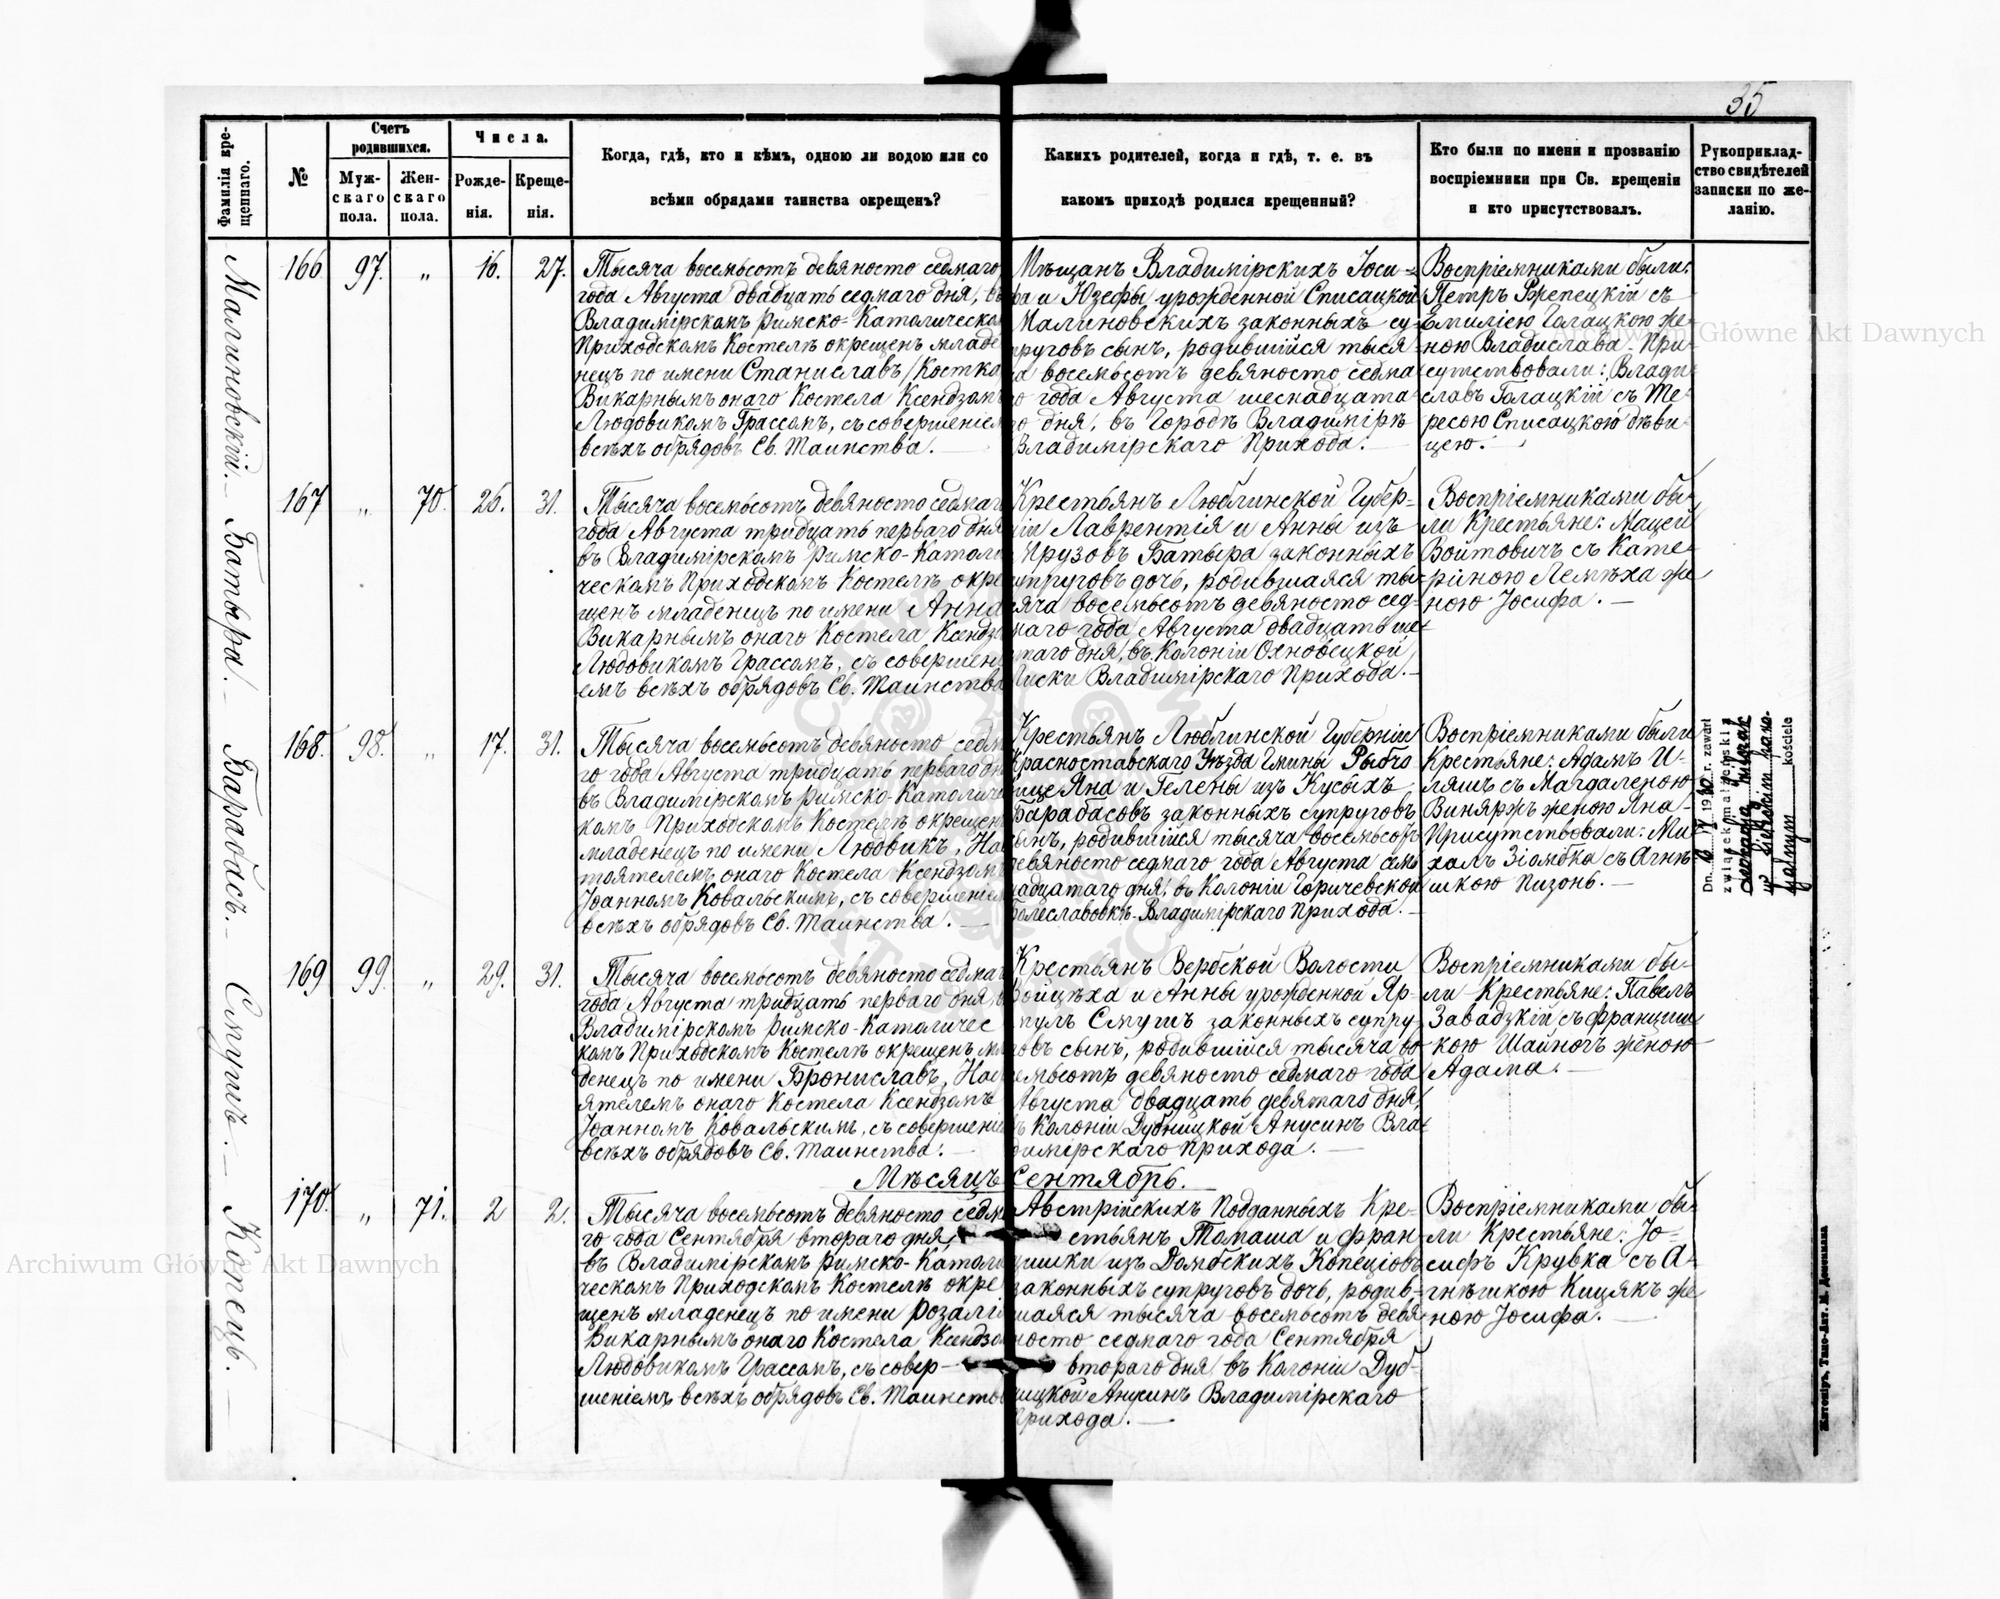 35
Фамилія кре-
щеннаго.
№
Счетъ
родившихся.
Муж-
скаго
пола.
Жен-
скаго
пола.
Числа.
Рожде-
нія.
Креще-
нія.
Когда, гдѣ, кто и кѣмъ, одною ли водою или со
всѣми обрядами таинства окрещенъ?
Какихъ родителей, когда и гдѣ, т. е. въ
какомъ приходѣ родился крещенный?
Кто были по имени и прозванію
воспріемники при Св. крещеніи
и кто присутствовалъ.
Рукоприклад-
ство свидѣтелей
записки по же-
ланію.
Малиновскій.
166 97. „ 16. 27.
Тысяча восемьсотъ девяносто седмаго
года Августа двадцать седмаго дня, въ
Владимірскомъ Римско-Католическо
Приходскомъ Костелѣ окрещенъ младе
нецъ по имени Станиславъ, Костка
Викарнымъ онаго Костела Ксендзомъ
Людовикомъ Грассомъ, съ совершеніем
всѣхъ обрядовъ Св. Таинства.
Мѣщанъ Владимірскихъ Іоси-
фа и Юзефы урожденной Списацкой
Малиновскихъ законныхъ су-
пруговъ сынъ, родившійся тыся
ча восемьсотъ девяносто седма
го года Августа шеснадцата
го дня, въ Городѣ Владимірѣ
Владимірскаго Прихода.
Воспріемниками были:
Петръ Ржепецкій съ
Емиліею Галацкою же-
ною Владислава. При-
сутствовали: Влади-
славъ Галацкій съ Те-
ресою Списацкою дѣви-
цею.
Батыра.
167 „ 70. 26. 31.
Тысяча восемьсотъ девяносто седмаг
года Августа тридцать перваго дня
въ Владимірскомъ Римско-Католи
ческомъ Приходскомъ Костелѣ окре
щенъ младенецъ по имени Анна
Викарнымъ онаго Костела Ксендзо
Людовикомъ Грассомъ, съ совершені
емъ всѣхъ обрядовъ Св. Таинства
Крестьянъ Люблинской Губер-
ніи Лаврентія и Анны изъ
Грузовъ Батыра законныхъ
супруговъ дочь, родившаяся ты-
сяча восемьсотъ девяносто сед-
маго года Августа двадцать ше
стаго дня, въ Колоніи Охновецкой
Лиски Владимірскаго Прихода.
Воспріемниками бы-
ли Крестьяне: Мацей
Войтовичъ съ Кате-
риною Лемѣха же
ною Іосифа.
Барабасъ.
168. 98. „ 17. 31.
Тысяча восемьсотъ девяносто седма
го года Августа тридцать перваго дн
въ Владимірскомъ Римско-Католиче
комъ Приходскомъ Костелѣ окрещен
младенецъ по имени Людвикъ, Нас
тоятелемъ онаго Костела Ксендзомъ
Іоанномъ Ковальскимъ, съ совершеніем
всѣхъ обрядовъ Св. Таинства.
Крестьянъ Люблинской Губерніи
Красноставскаго Уѣзда Гмины Рыбчо
вице Яна и Гелены изъ Кусыхъ
Барабасовъ законныхъ супруговъ
сынъ, родившійся тысяча восемьсотъ
девяносто седмаго года Августа семь
надцатаго дня, въ Колоніи Горичевской
Болеславовкѣ Владимірскаго Прихода.
Воспріемниками были
Крестьяне: Адамъ И-
ляшъ съ Магдаленою
Винярж женою Яна.
Присутствовали: Ми-
халъ Зіомбка съ Агнѣ
шкою Пизонь.
Dn. 6 V 1930 r. zawarł
związek małżeński z
kościele
Смушъ.
169 99. „ 29. 31.
Тысяча восемьсотъ девяносто седмаг
года Августа тридцать перваго дня, въ
Владимірскомъ Римско-Католичес
комъ Приходскомъ Костелѣ окрещенъ мл
денецъ по имени Брониславъ, Нас
ятелемъ онаго Костела Ксендзомъ
Іоанномъ Ковальскимъ, съ совершеніе
всѣхъ обрядовъ Св. Таинства.
Крестьянъ Вербской Волости
Войцѣха и Анны урожденной Яр-
мулъ Смушъ законныхъ супру-
говъ сынъ, родившійся тысяча во
семьсотъ девяносто седмаго года
Августа двадцать девятаго дня,
въ Колоніи Дубницкой Анусинъ Вла
димірскаго Прихода.
Воспріемниками бы-
ли Крестьяне: Павелъ
Завадзкій съ Францишкою
Шайногъ женою
Адама.
Мѣсяцъ Сентябрь.
Копецъ.
170. „ 71. 2 2.
Тысяча восемьсотъ девяносто седма
го года Сентября втораго дня,
въ Владимірскомъ Римско-Католи
ческомъ Приходскомъ Костелѣ окре
щенъ младенецъ по имени Розалія
Викарнымъ онаго Костела Ксендзо
Людовикомъ Грассомъ, съ совер-
шеніемъ всѣхъ обрядовъ Св. Таинства
Австрійскихъ Подданныхъ Кре-
стьянъ Томаша и Фран-
цишки изъ Домбскихъ Копеціовъ
законныхъ супруговъ дочь, родив-
шаяся тысяча восемьсотъ девя
носто седмаго года Сентября
втораго дня въ Колоніи Дуб-
ницкой Анусинъ Владимірскаго
Прихода.
Воспріемниками бы-
ли Крестьяне: Іо-
сифъ Крувка съ А-
гнѣшкою Кицякъ же
ною Іосифа.
Житоміръ, Типо-Лит. М. Дененмана
Archiwum Główne Akt Dawnych
Archiwum Główne Akt Dawnych